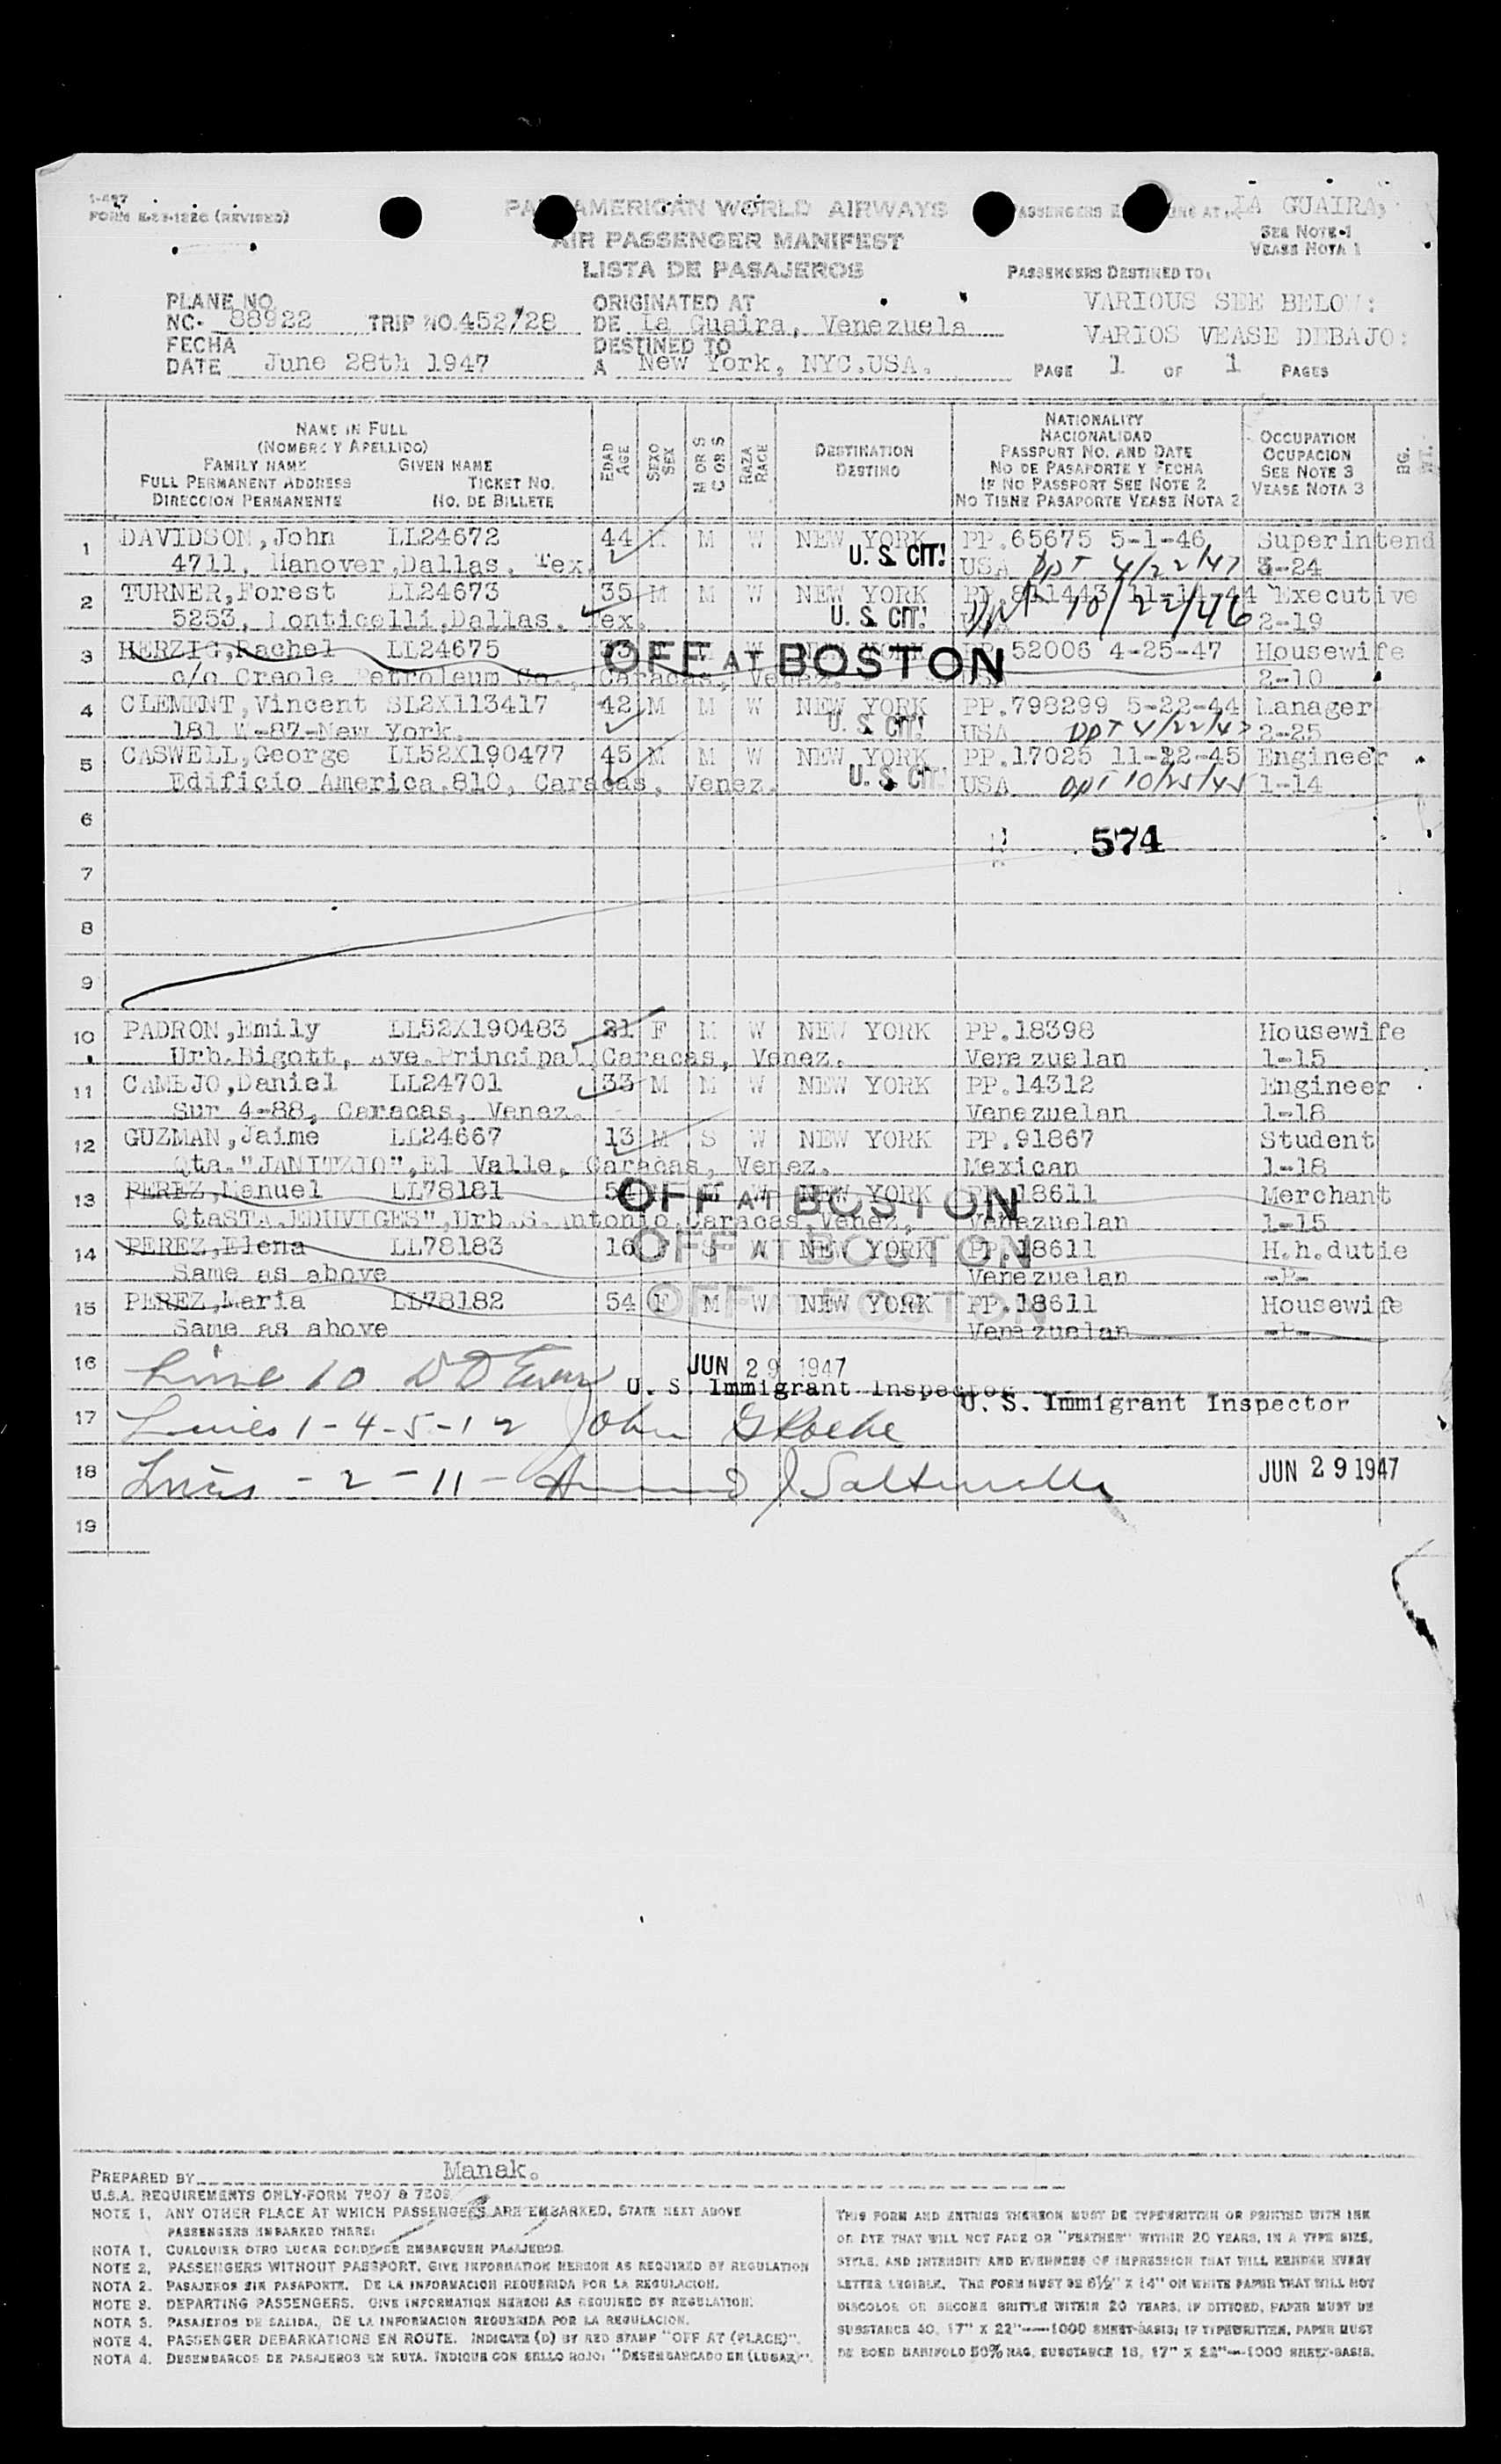 1-497
FORM (REVISED)
PAN AMERICAN WORLD AIRWAYS
AIR PASSENGER MANIFEST
LISTA DE PASAJEROS
PASSENGERS AT LA GUAIRA,
SEE NOTE 1
VEASE NOTA 1
PASSENGERS DESTINED TO:
VARIOUS SEE BELOW:
VARIOS VEASE DEBAJO:
PLANE NO.
NC- 88922 TRIP NO. 452/28
ORIGINATED AT
DE La Guaira, Venezuela
FECHA
DATE June 28th 1947
DESTINED TO
A New York, NYC.USA.
PAGE 1 OF 1 PAGES
NAME IN FULL
(NOMBRE Y APELLIDO)
FAMILY NAME GIVEN NAME
FULL PERMANENT ADDRESS TICKET NO.
DIRECCION PERMANENTE NO. DE BILLETE
EDAD AGE
SEXO SEX
M OR S C OR S
RAZA RACE
DESTINATION
DESTINO
NATIONALITY
NACIONALIDAD
PASSPORT NO. AND DATE
NO DE PASAPORTE Y FECHA
IF NO PASSPORT SEE NOTE 2
NO TIENE PASAPORTE VEASE NOTA 2
OCCUPATION
OCUPACION
SEE NOTE 3
VEASE NOTA 3
1 DAVIDSON,John LL24672 44 M M W NEW YORK PP.65675 5-1-46 Superintend
4711, Hanover,Dallas. Tex. U. S. CIT! USA DPT 4/22/47 3-24
2 TURNER,Forest LL24673 35 M M W NEW YORK PP.811443 11-14-44 Executive
5253, Donticelli,Dallas. Tex. U. S. CIT! 10/22/46 2-19
3 HERZIG,Rachel LL24675 OFF AT BOSTON 52006 4-25-47 Housewife
c/o Creole Petroleum Co., Caracas, Venez. 2-10
4 CLEMENT,Vincent SL2X113417 42 M M W NEW YORK PP.798299 5-22-44 Manager
181 E-87-New York. U. S. CIT! USA DPT 4/22/47 2-25
5 CASWELL,George LL52X190477 45 M M W NEW YORK PP.17025 11-22-45 Engineer
Edificio America,810, Caracas, Venez. U. S. CIT! USA DPT 10/25/45 1-14
6
574
7
8
9
10 PADRON,Emily LL52X190483 21 F M W NEW YORK PP.18398 Housewife
Urb.Bigott, Ave.Principal Caracas, Venez. Venezuelan 1-15
11 CAMEJO,Daniel LL24701 33 M M W NEW YORK PP.14312 Engineer
Sur 4-88, Caracas, Venez. Venezuelan 1-18
12 GUZMAN,Jaime LL24667 13 M S W NEW YORK PP.91867 Student
Qta."JANITZIO",El Valle, Caracas, Venez. Mexican 1-18
13 PEREZ,Manuel LL78181 54 M W NEW YORK PP.18611 Merchant
OFF AT BOSTON
QtaSTA.EDUVIGES",Urb.S.Antonio,Caracas,Venez. Venezuelan 1-15
14 PEREZ,Elena LL78183 16 F S W NEW YORK PP.18611 H.h.dutie
OFF AT BOSTON
Same as above Venezuelan -P-
15 PEREZ,Maria LL78182 54 F M W NEW YORK PP.18611 Housewife
OFF AT BOSTON
Same as above Venezuelan -P-
16 Line 10 JUN 29 1947
U. S. Immigrant Inspector
U. S. Immigrant Inspector
17 Lines 1-4-5-12 John G Roche
18 Lines - 2 - 11 - JUN 29 1947
19
PREPARED BY Manak.
U.S.A. REQUIREMENTS ONLY-FORM 7507 & 7509
NOTE 1. ANY OTHER PLACE AT WHICH PASSENGERS ARE EMBARKED, STATE NEXT ABOVE
PASSENGERS EMBARKED THERE:
NOTA 1. CUALQUIER OTRO LUGAR DONDE SE EMBARQUEN PASAJEROS.
NOTE 2. PASSENGERS WITHOUT PASSPORT. GIVE INFORMATION HEREON AS REQUIRED BY REGULATION
NOTA 2. PASAJEROS SIN PASAPORTE. DE LA INFORMACION REQUERIDA POR LA REGULACION.
NOTE 3. DEPARTING PASSENGERS. GIVE INFORMATION HEREON AS REQUIRED BY REGULATION.
NOTA 3. PASAJEROS DE SALIDA, DE LA INFORMACION REQUERIDA POR LA REGULACION.
NOTE 4. PASSENGER DEBARKATIONS EN ROUTE. INDICATE (D) BY RED STAMP "OFF AT (PLACE)".
NOTA 4. DESEMBARCOS DE PASAJEROS EN RUTA. INDIQUE CON SELLO ROJO: "DESEMBARCADO EN (LUGAR)".
THIS FORM AND ENTRIES THEREON MUST BE TYPEWRITTEN OR PRINTED WITH INK
OR DYE THAT WILL NOT FADE OR "FEATHER" WITHIN 20 YEARS, IN A TYPE SIZE,
STYLE, AND INTENSITY AND EVENNESS OF IMPRESSION THAT WILL RENDER EVERY
LETTER LEGIBLE. THE FORM MUST BE 8½" X 14" ON WHITE PAPER THAT WILL NOT
DISCOLOR OR BECOME BRITTLE WITHIN 20 YEARS. IF DITTOED, PAPER MUST BE
SUBSTANCE 40, 17" X 22"—1000 SHEET-BASIS; IF TYPEWRITTEN, PAPER MUST
BE BOND MANIFOLD 50% RAG, SUBSTANCE 16, 17" X 22"—1000 SHEET-BASIS.